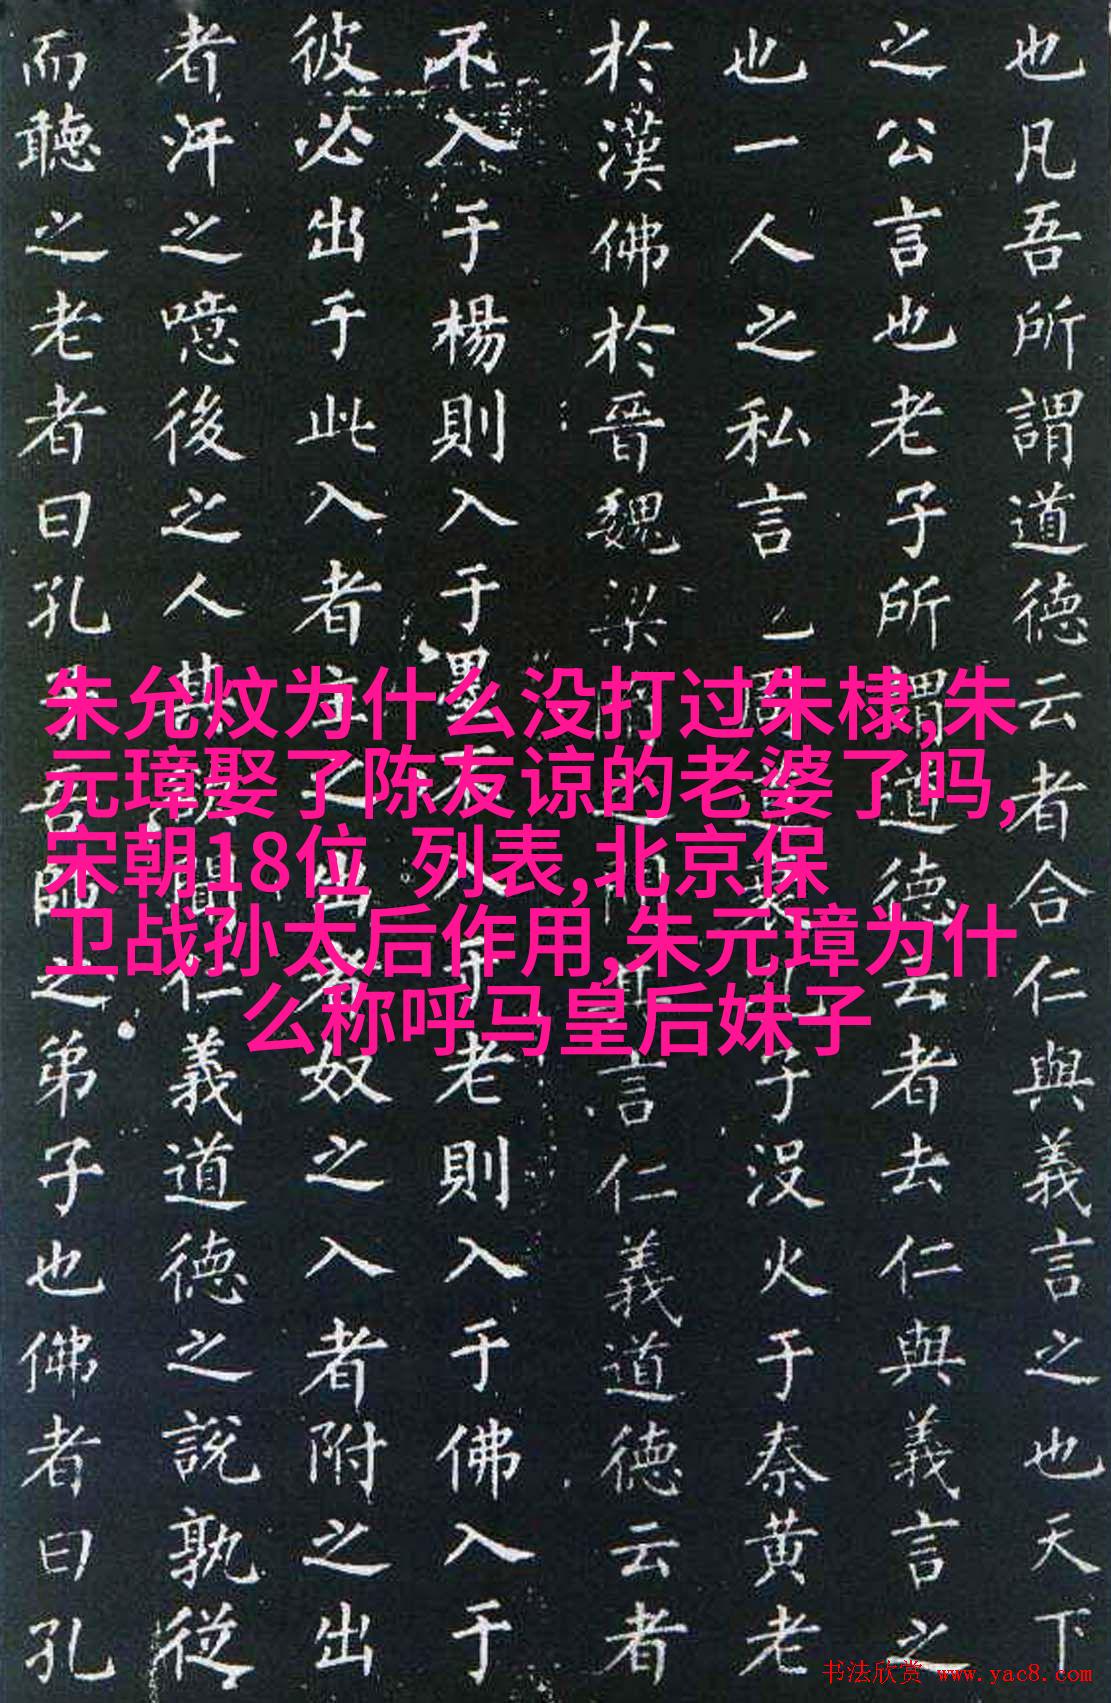 也凡吾所謂道德云者合仁與義言之也天下
之公言也老子所謂道德云者去仁與義言之
也一人之私言也周道衰孔子没火于秦黄老
於漢佛於晉魏梁隋之間其言仁義道德云者
不入于楊則入于墨不入于老則入于佛入于
彼必出于此入者主之出者奴之入者附之出
者汙之噫後之人其欲聞仁義道德之說孰從
而聽之老者曰孔子吾師之弟子也佛者曰孔
朱允炆为什么没打过朱棣,朱
元璋娶了陈友谅的老婆了吗,
宋朝18位 列表,北京保
卫战孙太后作用,朱元璋为什
么称呼马皇后妹子
书法欣赏 www.yac8.com